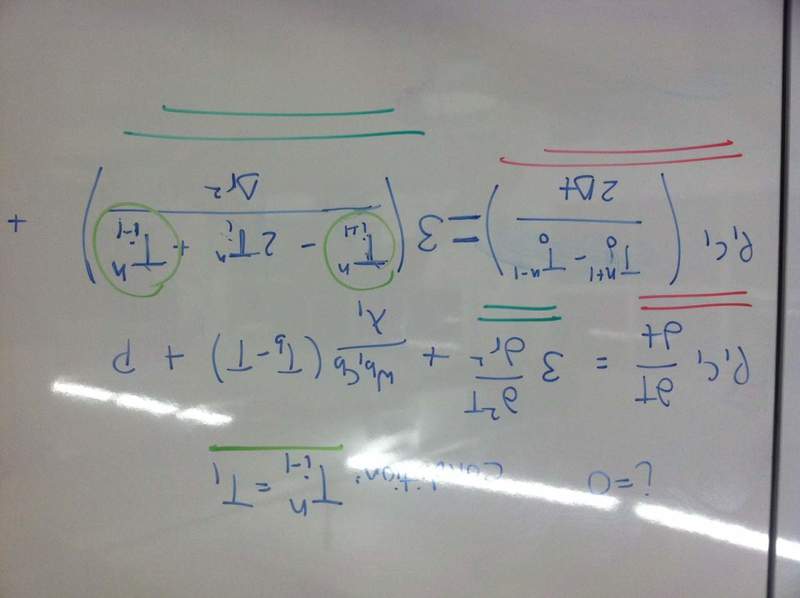 i=0 condition: Tⁿᵢ₋₁ = T₁
ρ₁c₁ ∂T/∂t = 3 ∂²T/∂r² + (w_b₁c_b/λ₁)(T_b - T) + P
ρ₁c₁ ((T₀ⁿ⁺¹ - T₀ⁿ⁻¹)/(2Δt)) = 3 ((Tⁿᵢ₊₁ - 2Tᵢⁿ + Tⁿᵢ₋₁)/Δr²) +